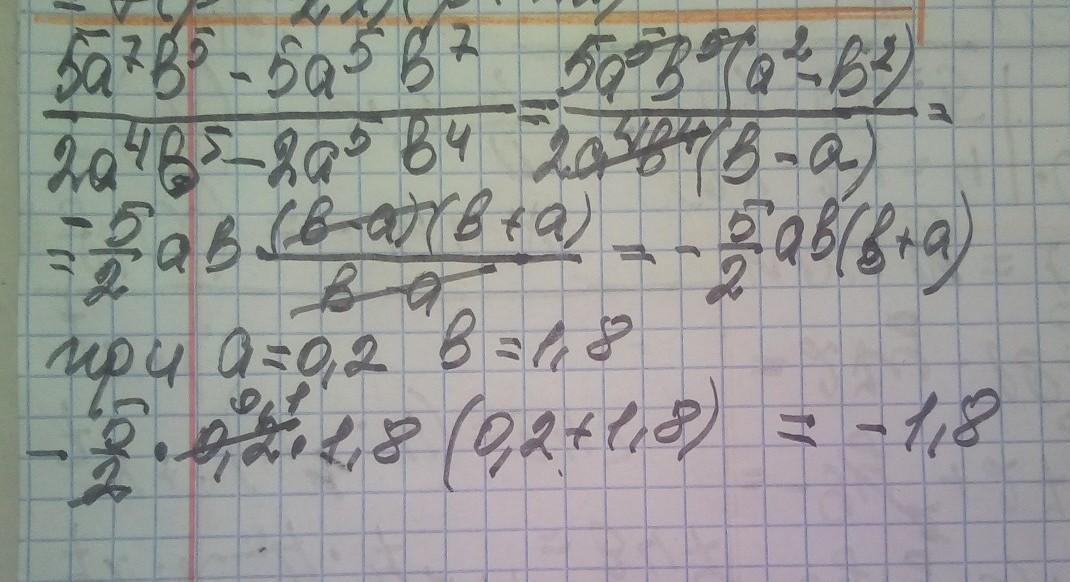 5a⁷b⁵ - 5a⁵b⁷ / 2a⁴b⁵ - 2a⁵b⁴ = 5a⁵b⁵(a² - b²) / 2a⁴b⁴(b - a) =
= -5/2 ab (b - a)(b + a) / b - a = - 5/2 ab(b + a)
при a = 0,2 b = 1,8
- 5/2 · 0,2 0,1 · 1,8 (0,2 + 1,8) = - 1,8